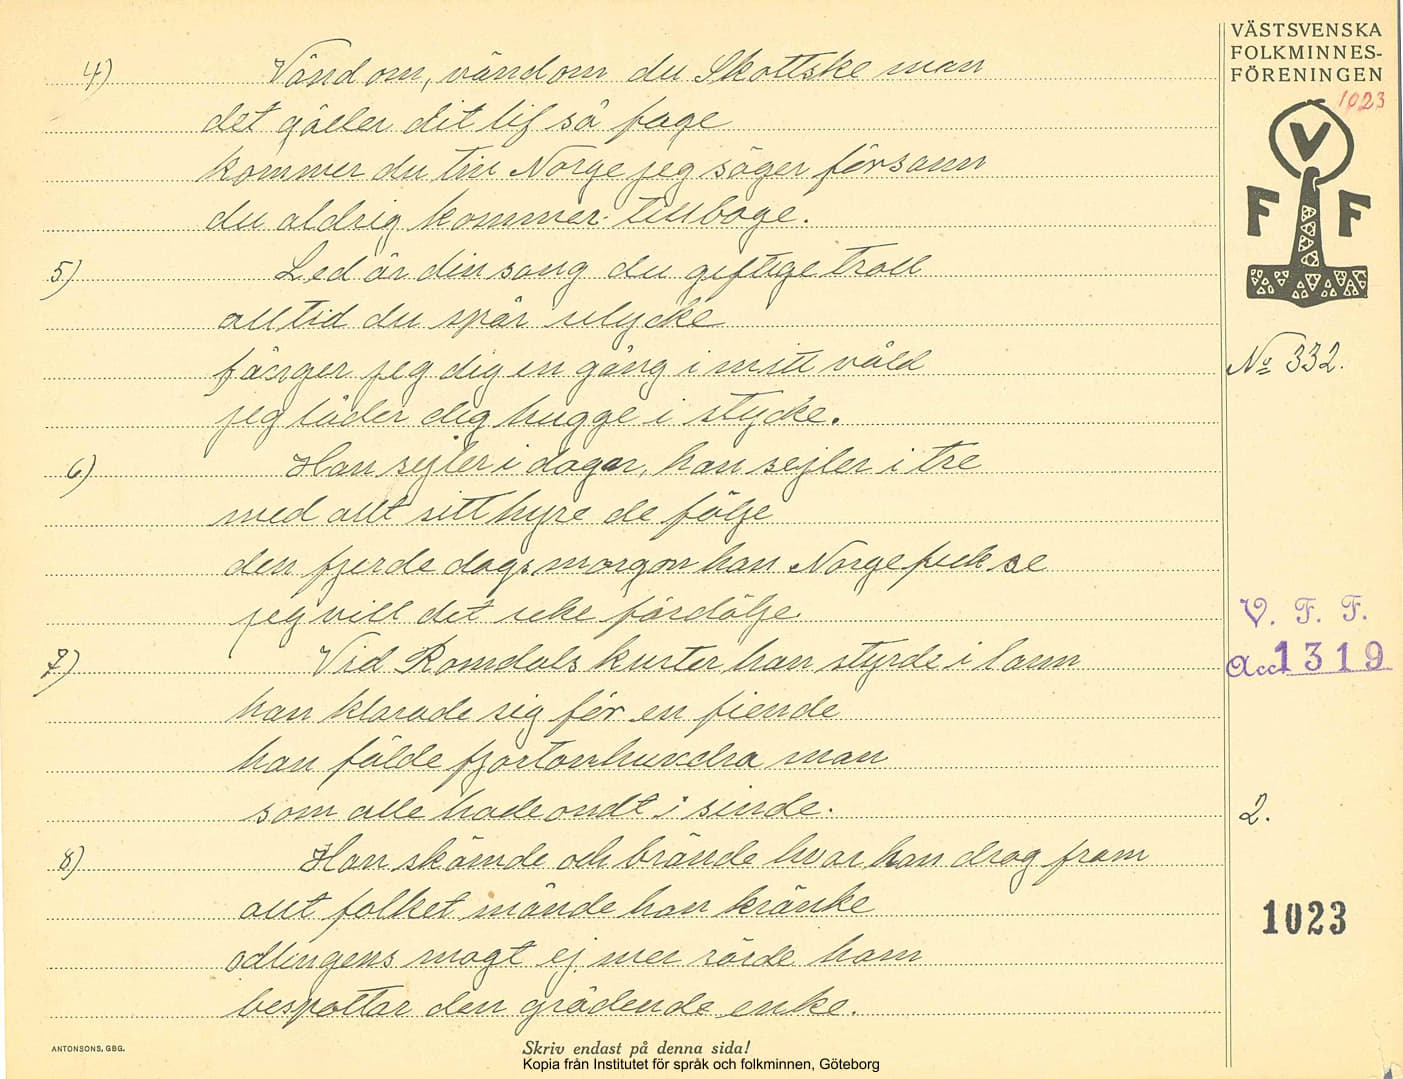 VÄSTSVENSKA
FOLKMINNES-
FÖRENINGEN
1023
V
F F
4) Vänd om, vänd om du Skottske man
det gäller dit lif så fage
kommer du till Norge jeg säger försann
du aldrig kommer tillbage.
5) Led är din sang du giftige troll
alltid du spår ulycke
fånger jeg dig en gång i mitt våld
jeg låder dig hugge i stycke.
6) Han sejler i dagar, han sejler i tre
med allt sitt hyre de följe
den fjerde dags morgon han Norge feck se
jeg vill det icke fördölje
7) Vid Romdals kuster han styrde i lann
han klarade sig för en fiende
han fälde fjortonhundra man
som alle hade ondt i sinde.
8) Han skämde och brände hvar han drog fram
allt folket månde han kränke
odlingens magt ej mer rörde ham
bespottar den grådende enke.
No 332.
V. F. F.
Acc 1319
2.
1023
ANTONSONS, GBG.
Skriv endast på denna sida!
Kopia från Institutet för språk och folkminnen, Göteborg